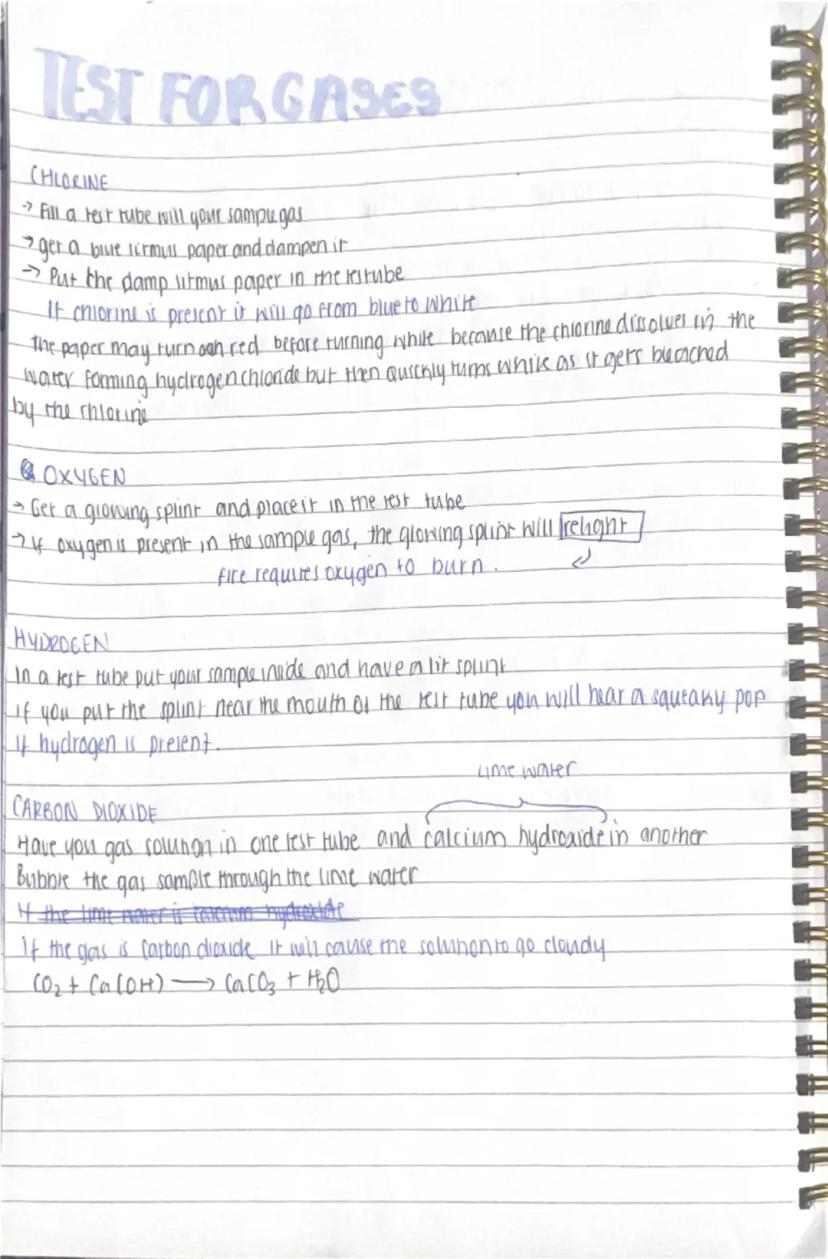 TEST FOR GASES
CHLORINE
→ Fill a test tube will your sample gas
→ get a blue litmus paper and dampen it
→ Put the damp litmus paper in the testube
If chlorine is present it will go from blue to white
the paper may turn red before turning white because the chlorine dissolves in the
water forming hydrogen chloride but then quickly turns white as it gets bleached
by the chlorine
OXYGEN
→ Get a glowing splint and place it in the test tube
→ if oxygen is present in the sample gas, the glowing splint will relight
fire requires oxygen to burn.
HYDROGEN
In a test tube put your sample inside and have a lit splint
if you put the splint near the mouth of the test tube you will hear a squeaky pop
if hydrogen is present.
lime water
CARBON DIOXIDE
Have you gas solution in one test tube and calcium hydroxide in another
Bubble the gas sample through the lime water
If the lime water is calcium hydroxide
if the gas is carbon dioxide it will cause the solution to go cloudy
CO₂ + Ca(OH) → CaCO₃ + H₂O